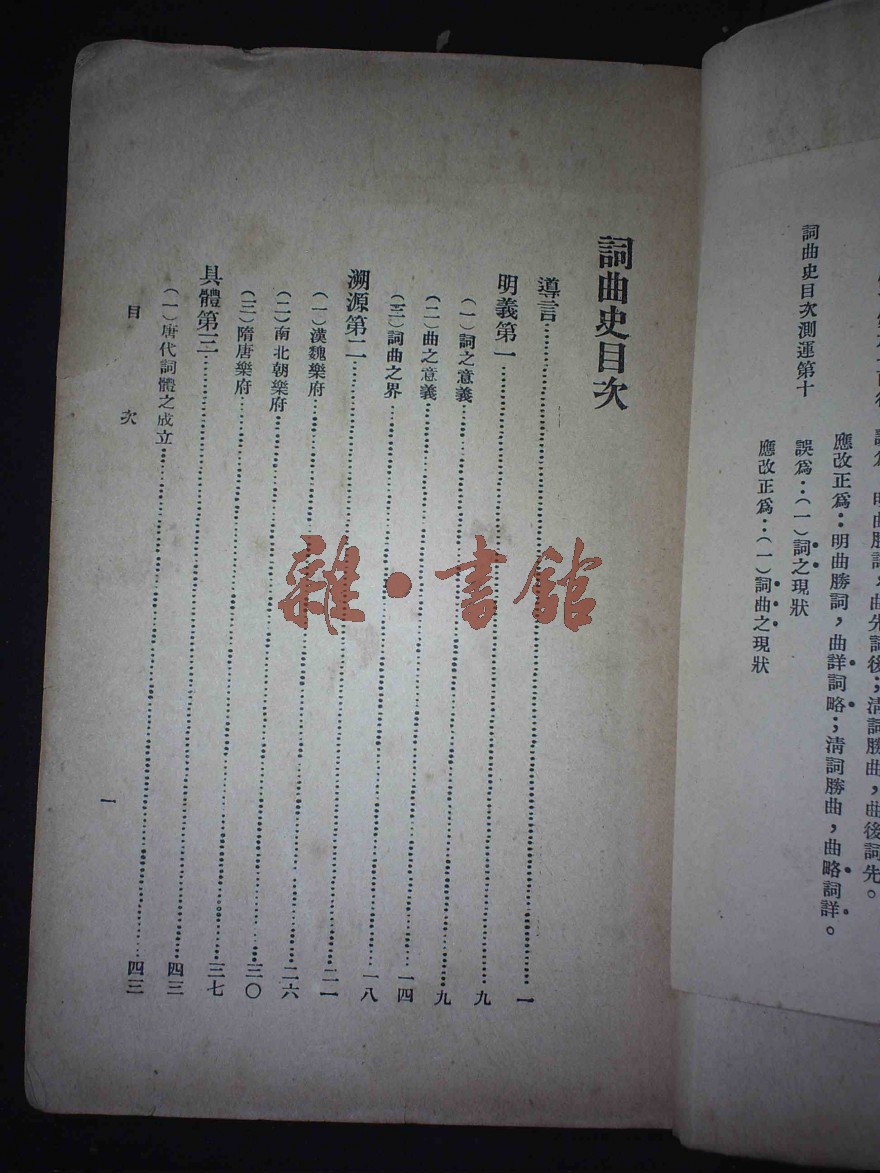 明曲勝詞，曲先詞後；清詞勝曲，曲後詞先。
應改正爲：明曲勝詞，曲詳詞略；清詞勝曲，曲略詞詳。
詞曲史目次測運第十
誤爲：（一）詞之現狀
應改正爲：（一）詞曲之現狀
詞曲史目次
導言……一
明義第一……九
（一）詞之意義……九
（二）曲之意義……一四
（三）詞曲之界……一八
溯源第二……二一
（一）漢魏樂府……二六
（二）南北朝樂府……三〇
（三）隋唐樂府……三七
具體第三……四三
（一）唐代詞體之成立……四三
目次
一
雜·書館